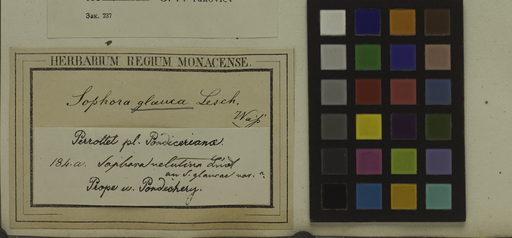 Зак. 237
HERBARIUM REGIUM MONACENSE.
Sophora glauca Lesch.
Perrottet pl. Pondiceriana.
184.a. Sophora velutina Lindl
an S. glaucae var. ?
Prope u. Pondichery.